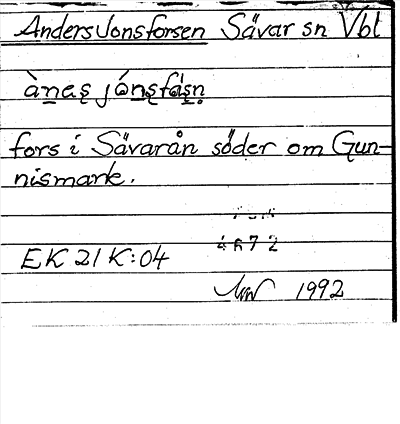 AndersJonsforsen Sävar sn Vbl
fors i Sävarån söder om Gun-
nismark.
EK 21 K:04
4672
1992